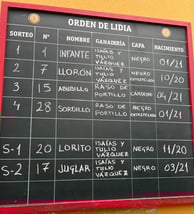 ORDEN DE LIDIA
SORTEO Nº NOMBRE GANADERÍA CAPA NACIMIENTO
1 1 INFANTE ISAÍAS Y TULIO VÁZQUEZ NEGRO 01/21
2 7 LLORÓN ISAÍAS Y TULIO VÁZQUEZ NEGRO ENTREPELAO 10/20
3 15 ABUBILLO RASO DE PORTILLO CÁRDENO 04/21
4 28 SORDILLO RASO DE PORTILLO NEGRO ENTREPELAO 01/21
S-1 20 LORITO ISAÍAS Y TULIO VÁZQUEZ NEGRO 11/20
S-2 7 JUGLAR ISAÍAS Y TULIO VÁZQUEZ NEGRO 03/21